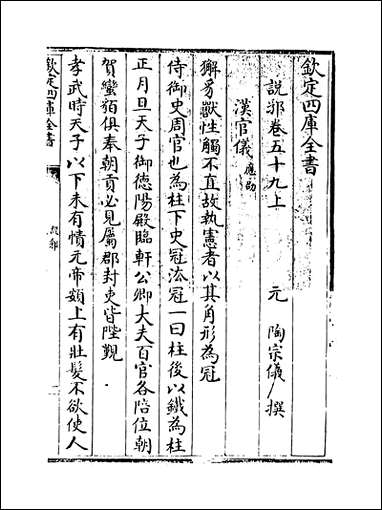 欽定四庫全書
說郛卷五十九上
元 陶宗儀 撰
漢官儀 應劭
獬豸獸性觸不直故執憲者以其角形為冠
侍御史周官也為柱下史冠法冠一曰柱後以鐵為柱
正月旦天子御德陽殿臨軒公卿大夫百官各陪位朝
賀蠻貊俱奉朝貢必見屬郡封吏皆陛覲
孝武時天子以下未有幘元帝額上有壯髮不欲使人
欽定四庫全書
說郛